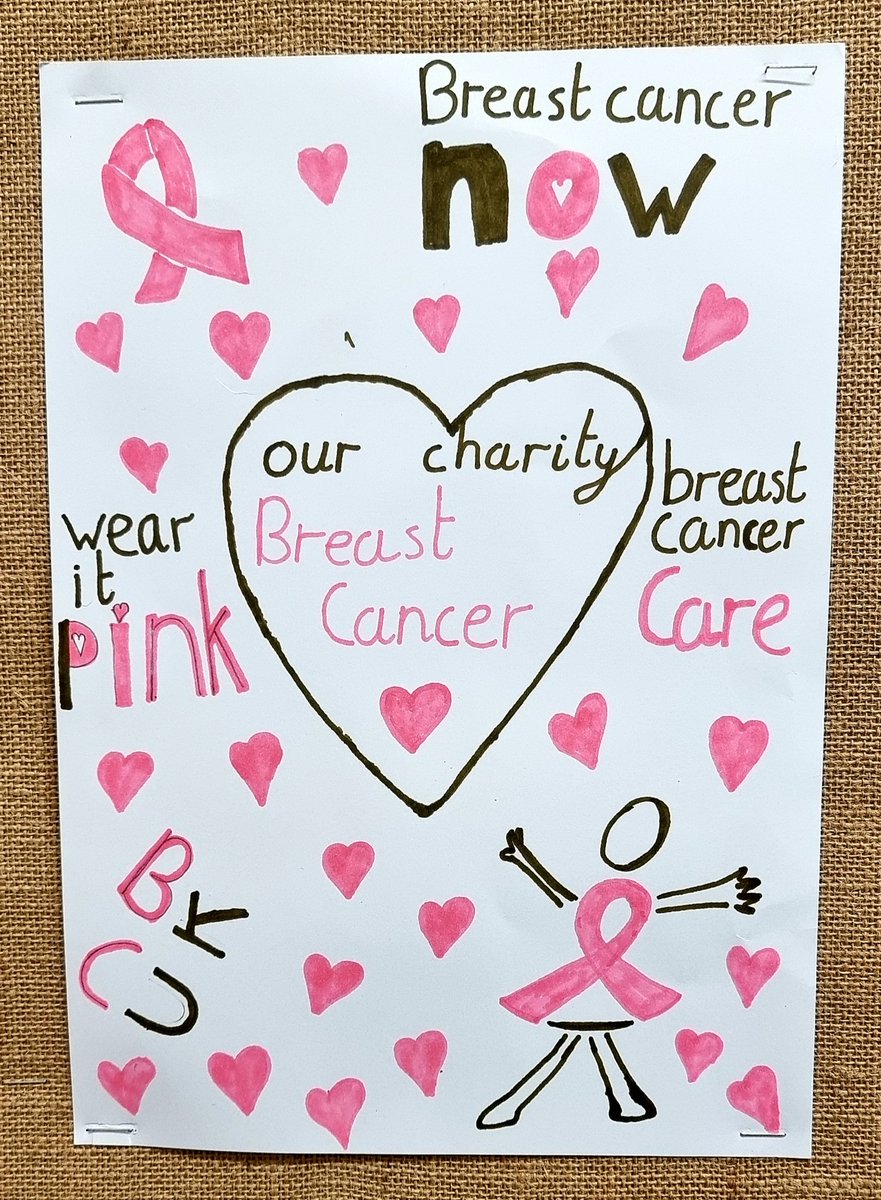 Breast cancer
now
our charity
Breast
Cancer
wear
it
pink
breast
cancer
Care
B K
C U